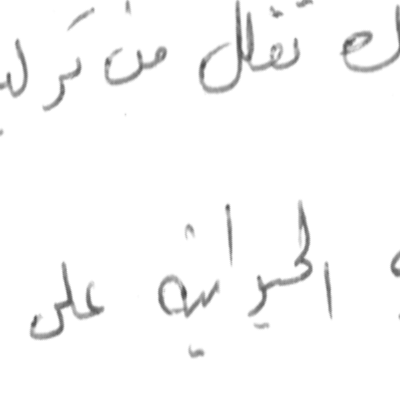 تقلل من تركيـ
الحيوانية على